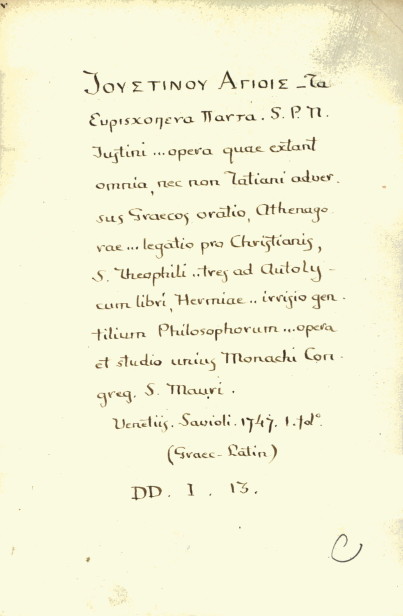 ΙΟΥΣΤΙΝΟΥ ΑΓΙΟΙΣ _ Τα
Ευρισχομενα Παντα. S. P. N.
Justini ... opera quae extant
omnia, nec non Tatiani adver-
sus Graecos oratio, Athenago
rae ... legatio pro Christianis,
S. Theophili ... tres ad Autoly-
cum libri, Hermiae .. irrisio gen-
tilium Philosophorum ... opera
et studio unius Monachi Con-
greg. S. Mauri.
Venetiis. Savioli. 1747. 1. fol°
(Graec - Latin)
DD. I. 13.
C